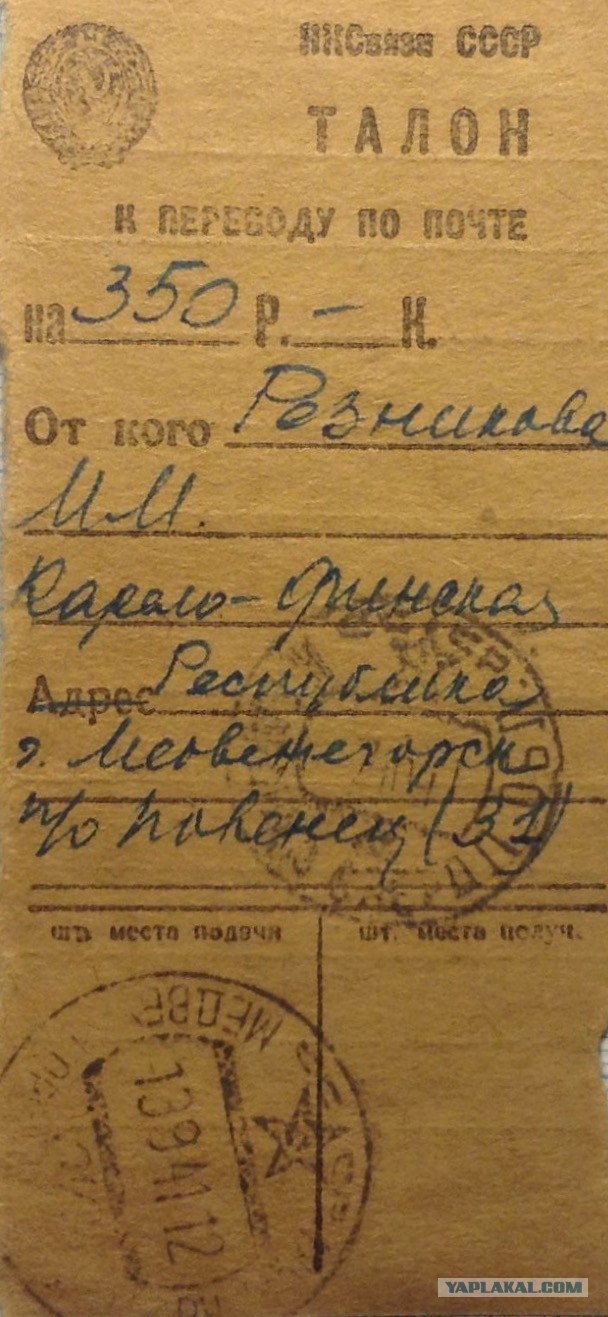 НКСвязи СССР
ТАЛОН
К ПЕРЕВОДУ ПО ПОЧТЕ
на 350 Р. — К.
От кого Резникова
И.И.
Карело-Финская
Адрес Республика
г. Медвежегорск
п/о Повенец (31)
шт. места подачи шт. места получ.
МЕДВЕ
13 9 41 12
YAPLAKAL.COM